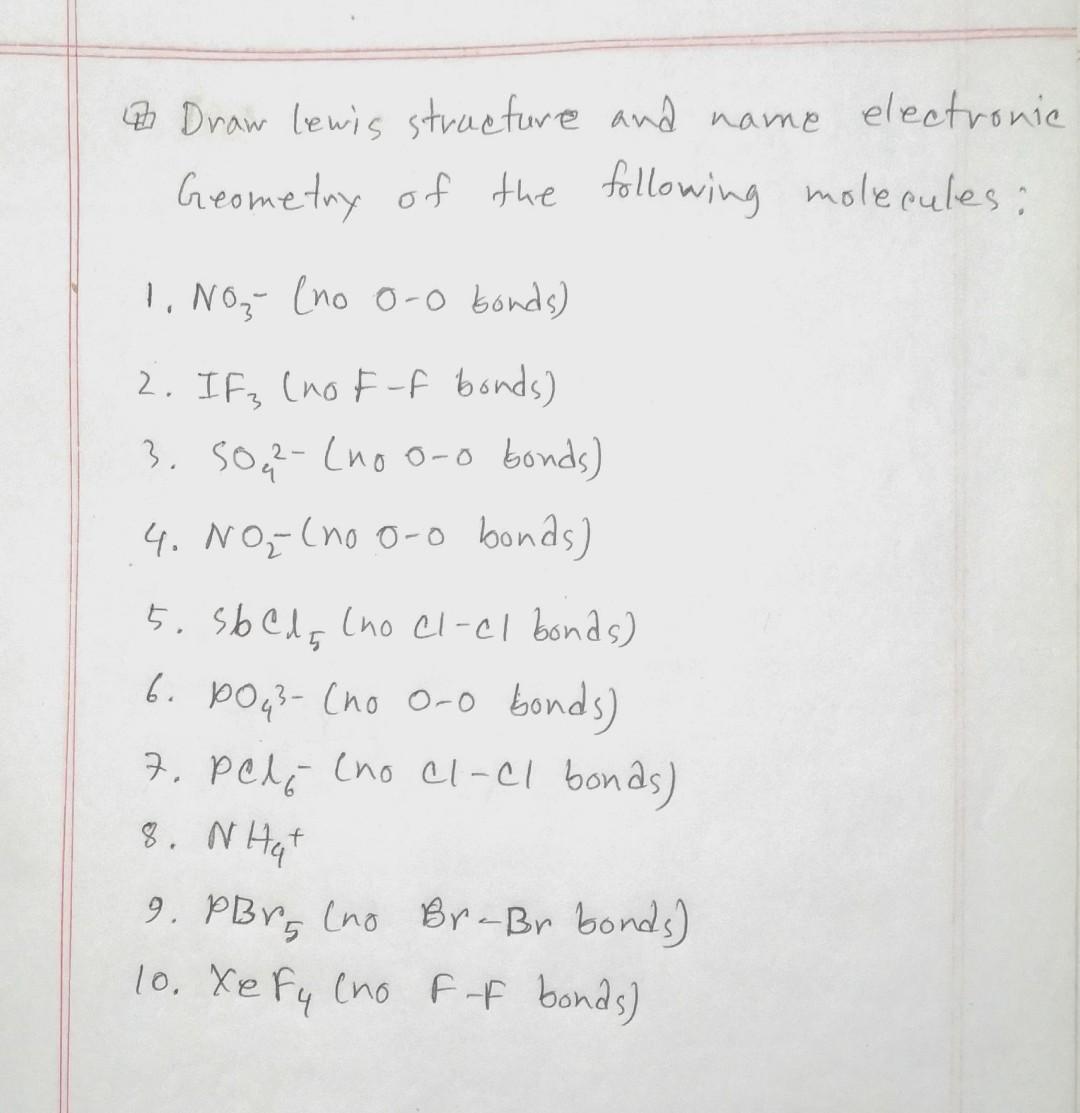 Draw lewis structure and name electronic
Geometry of the following molecules:
1. NO₃⁻ (no O-O bonds)
2. IF₃ (no F-F bonds)
3. SO₄²⁻ (no O-O bonds)
4. NO₂⁻ (no O-O bonds)
5. SbCl₅ (no Cl-Cl bonds)
6. PO₄³⁻ (no O-O bonds)
7. PCl₆⁻ (no Cl-Cl bonds)
8. NH₄⁺
9. PBr₅ (no Br-Br bonds)
10. XeF₄ (no F-F bonds)